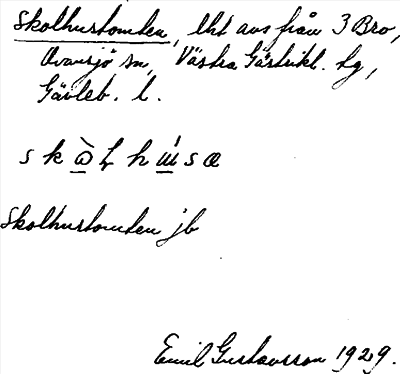 Skolhustomten, lht avs från 3 Bro,
Ovansjö sn, Västra Gästrikl. tg,
Gävleb. l.
Skolhustomten jb
Emil Gustavsson 1929.